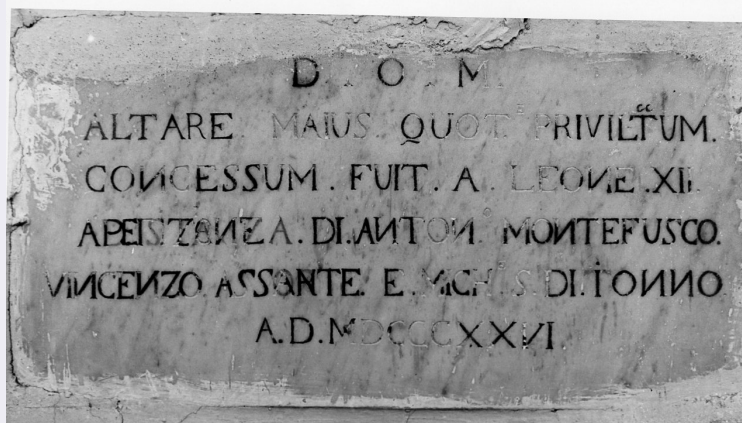 D. O. M.
ALTARE. MAIUS. QUOT.º PRIVILT̃UM.
CONCESSUM. FUIT. A. LEONE. XII.
APEISTANZA. DI. ANTON.º MONTEFUSCO.
VINCENZO. ASSANTE. E. MICH.º S. DI. IONNO
A.D. MDCCCXXVI.